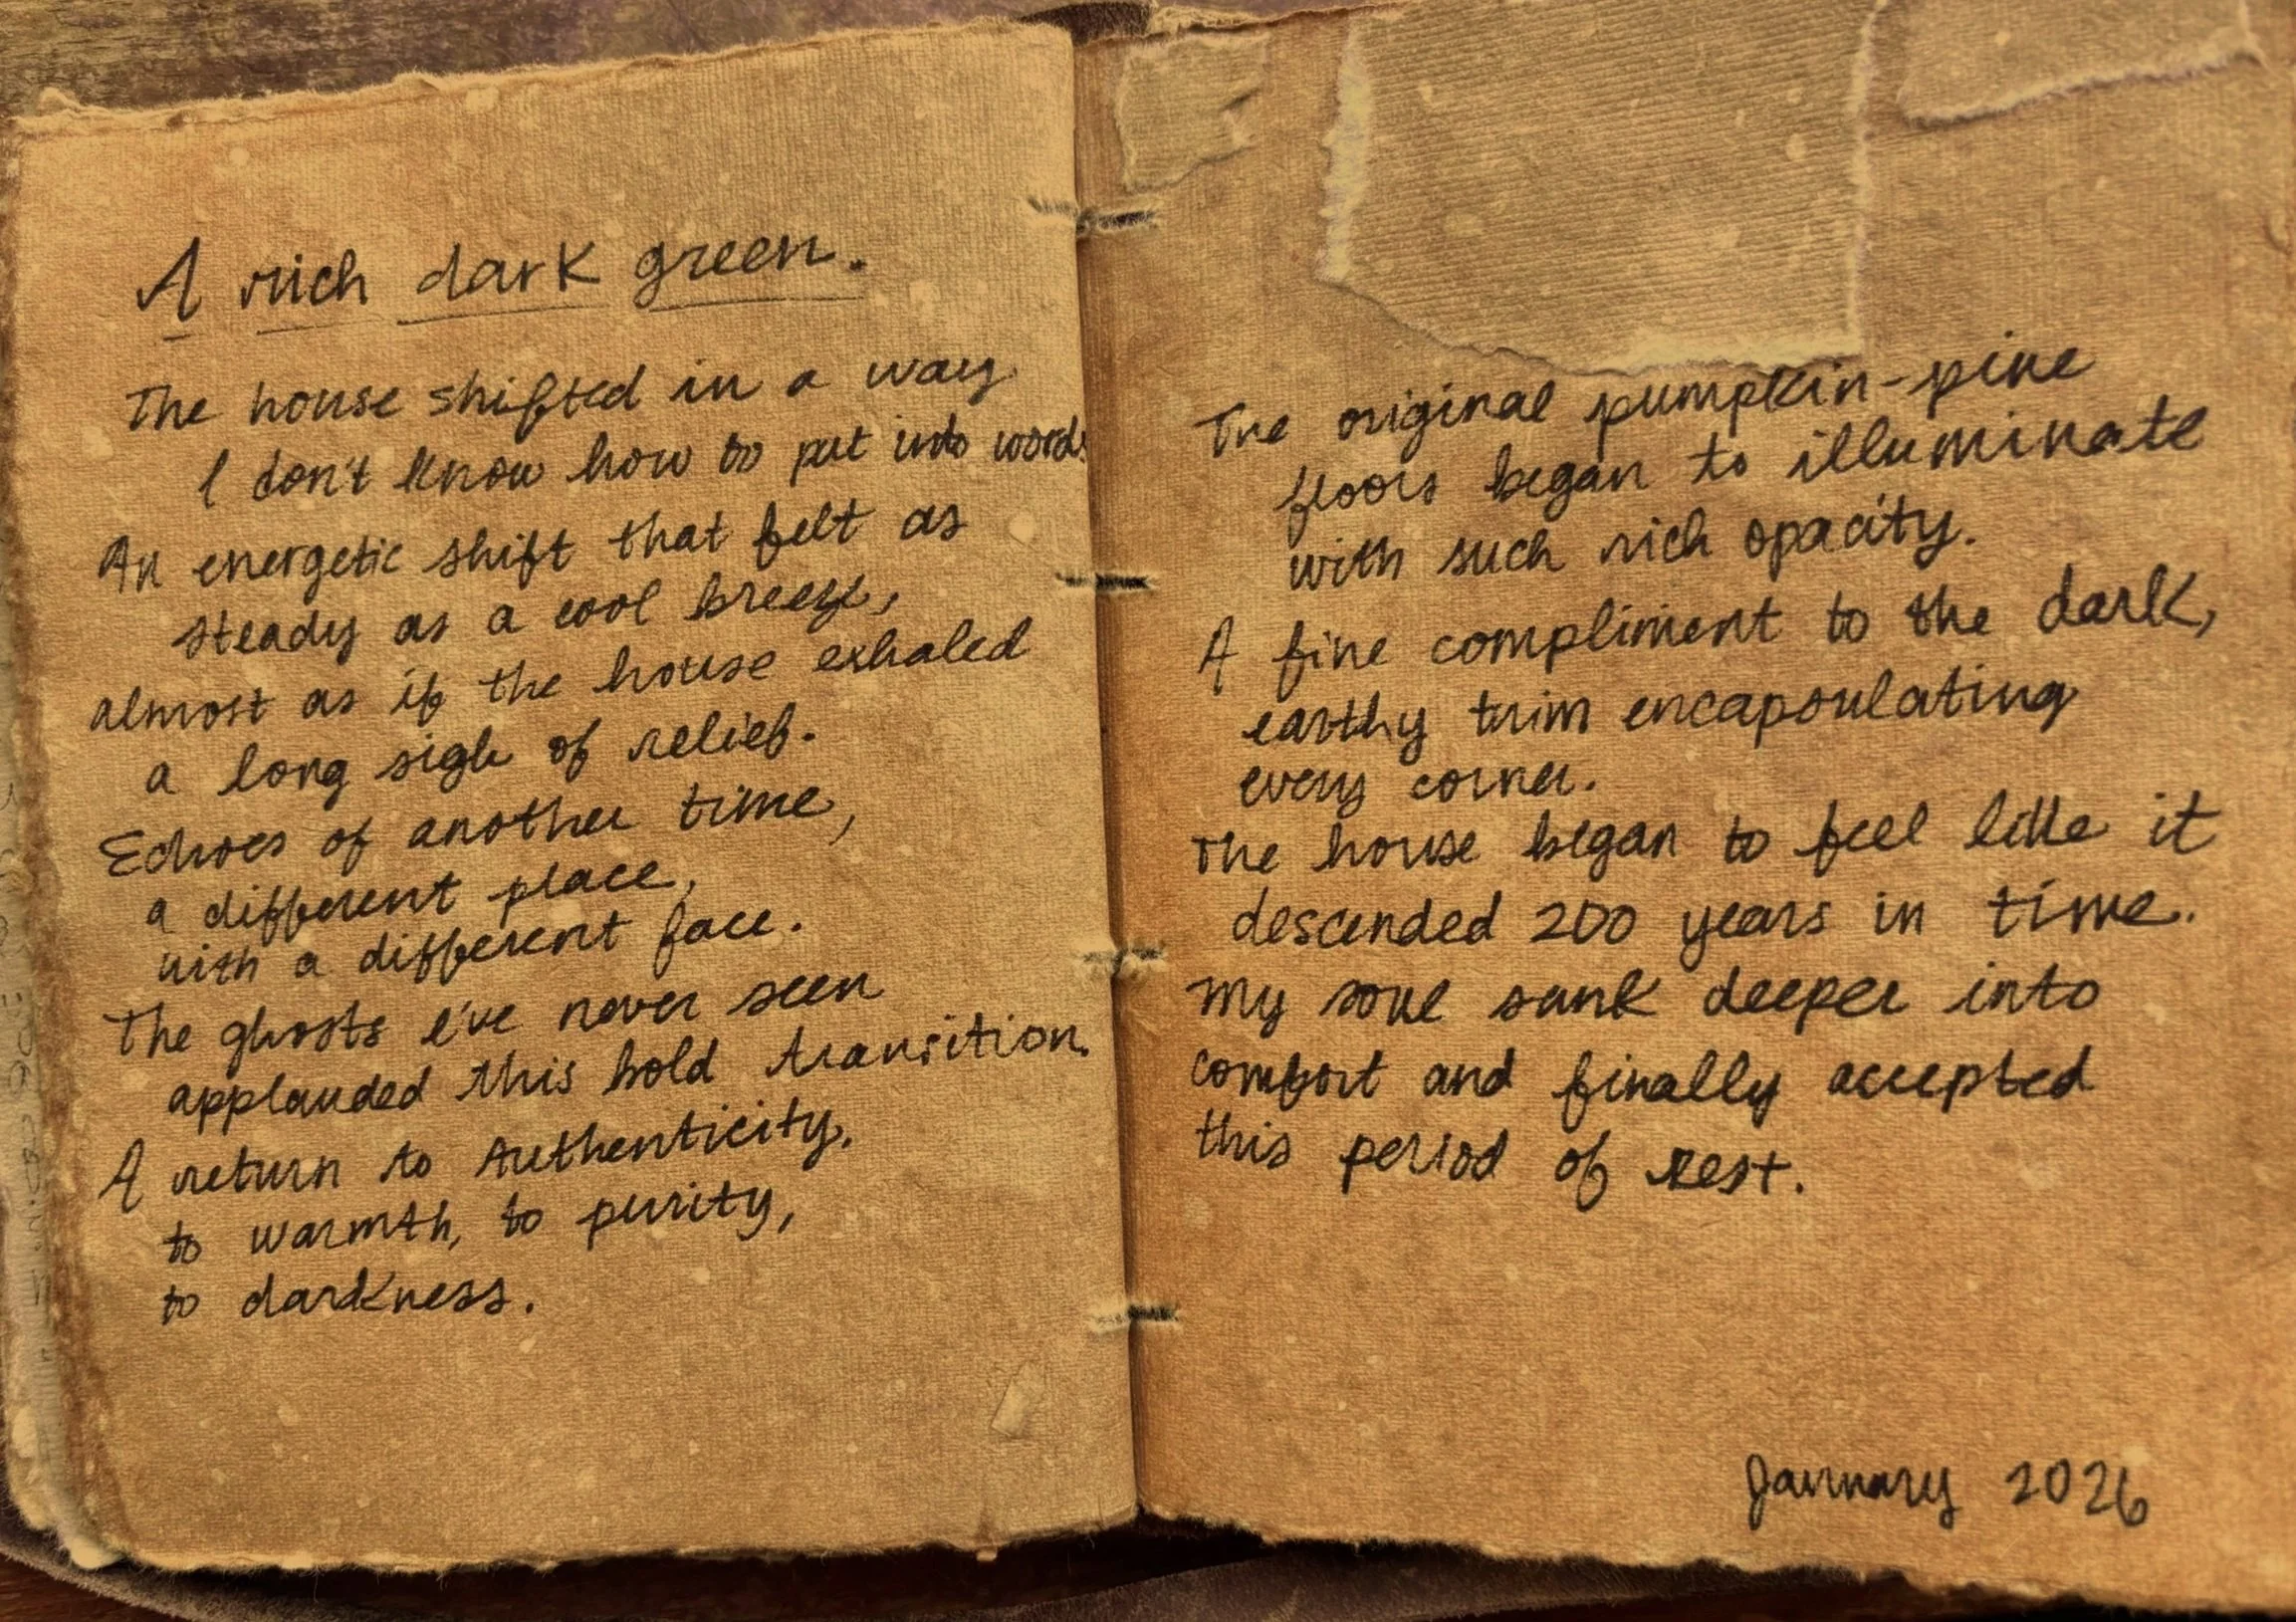 A rich dark green.
The house shifted in a way
I don't know how to put into words
An energetic shift that felt as
steady as a cool breeze,
almost as if the house exhaled
a long sigh of relief.
Echoes of another time,
a different place,
with a different face.
The ghosts I've never seen
applauded this bold transition.
A return to Authenticity,
to warmth, to purity,
to darkness.
The original pumpkin-pine
floors began to illuminate
with such rich opacity.
A fine compliment to the dark,
earthy trim encapsulating
every corner.
The house began to feel like it
descended 200 years in time.
My soul sank deeper into
comfort and finally accepted
this period of rest.
January 2026